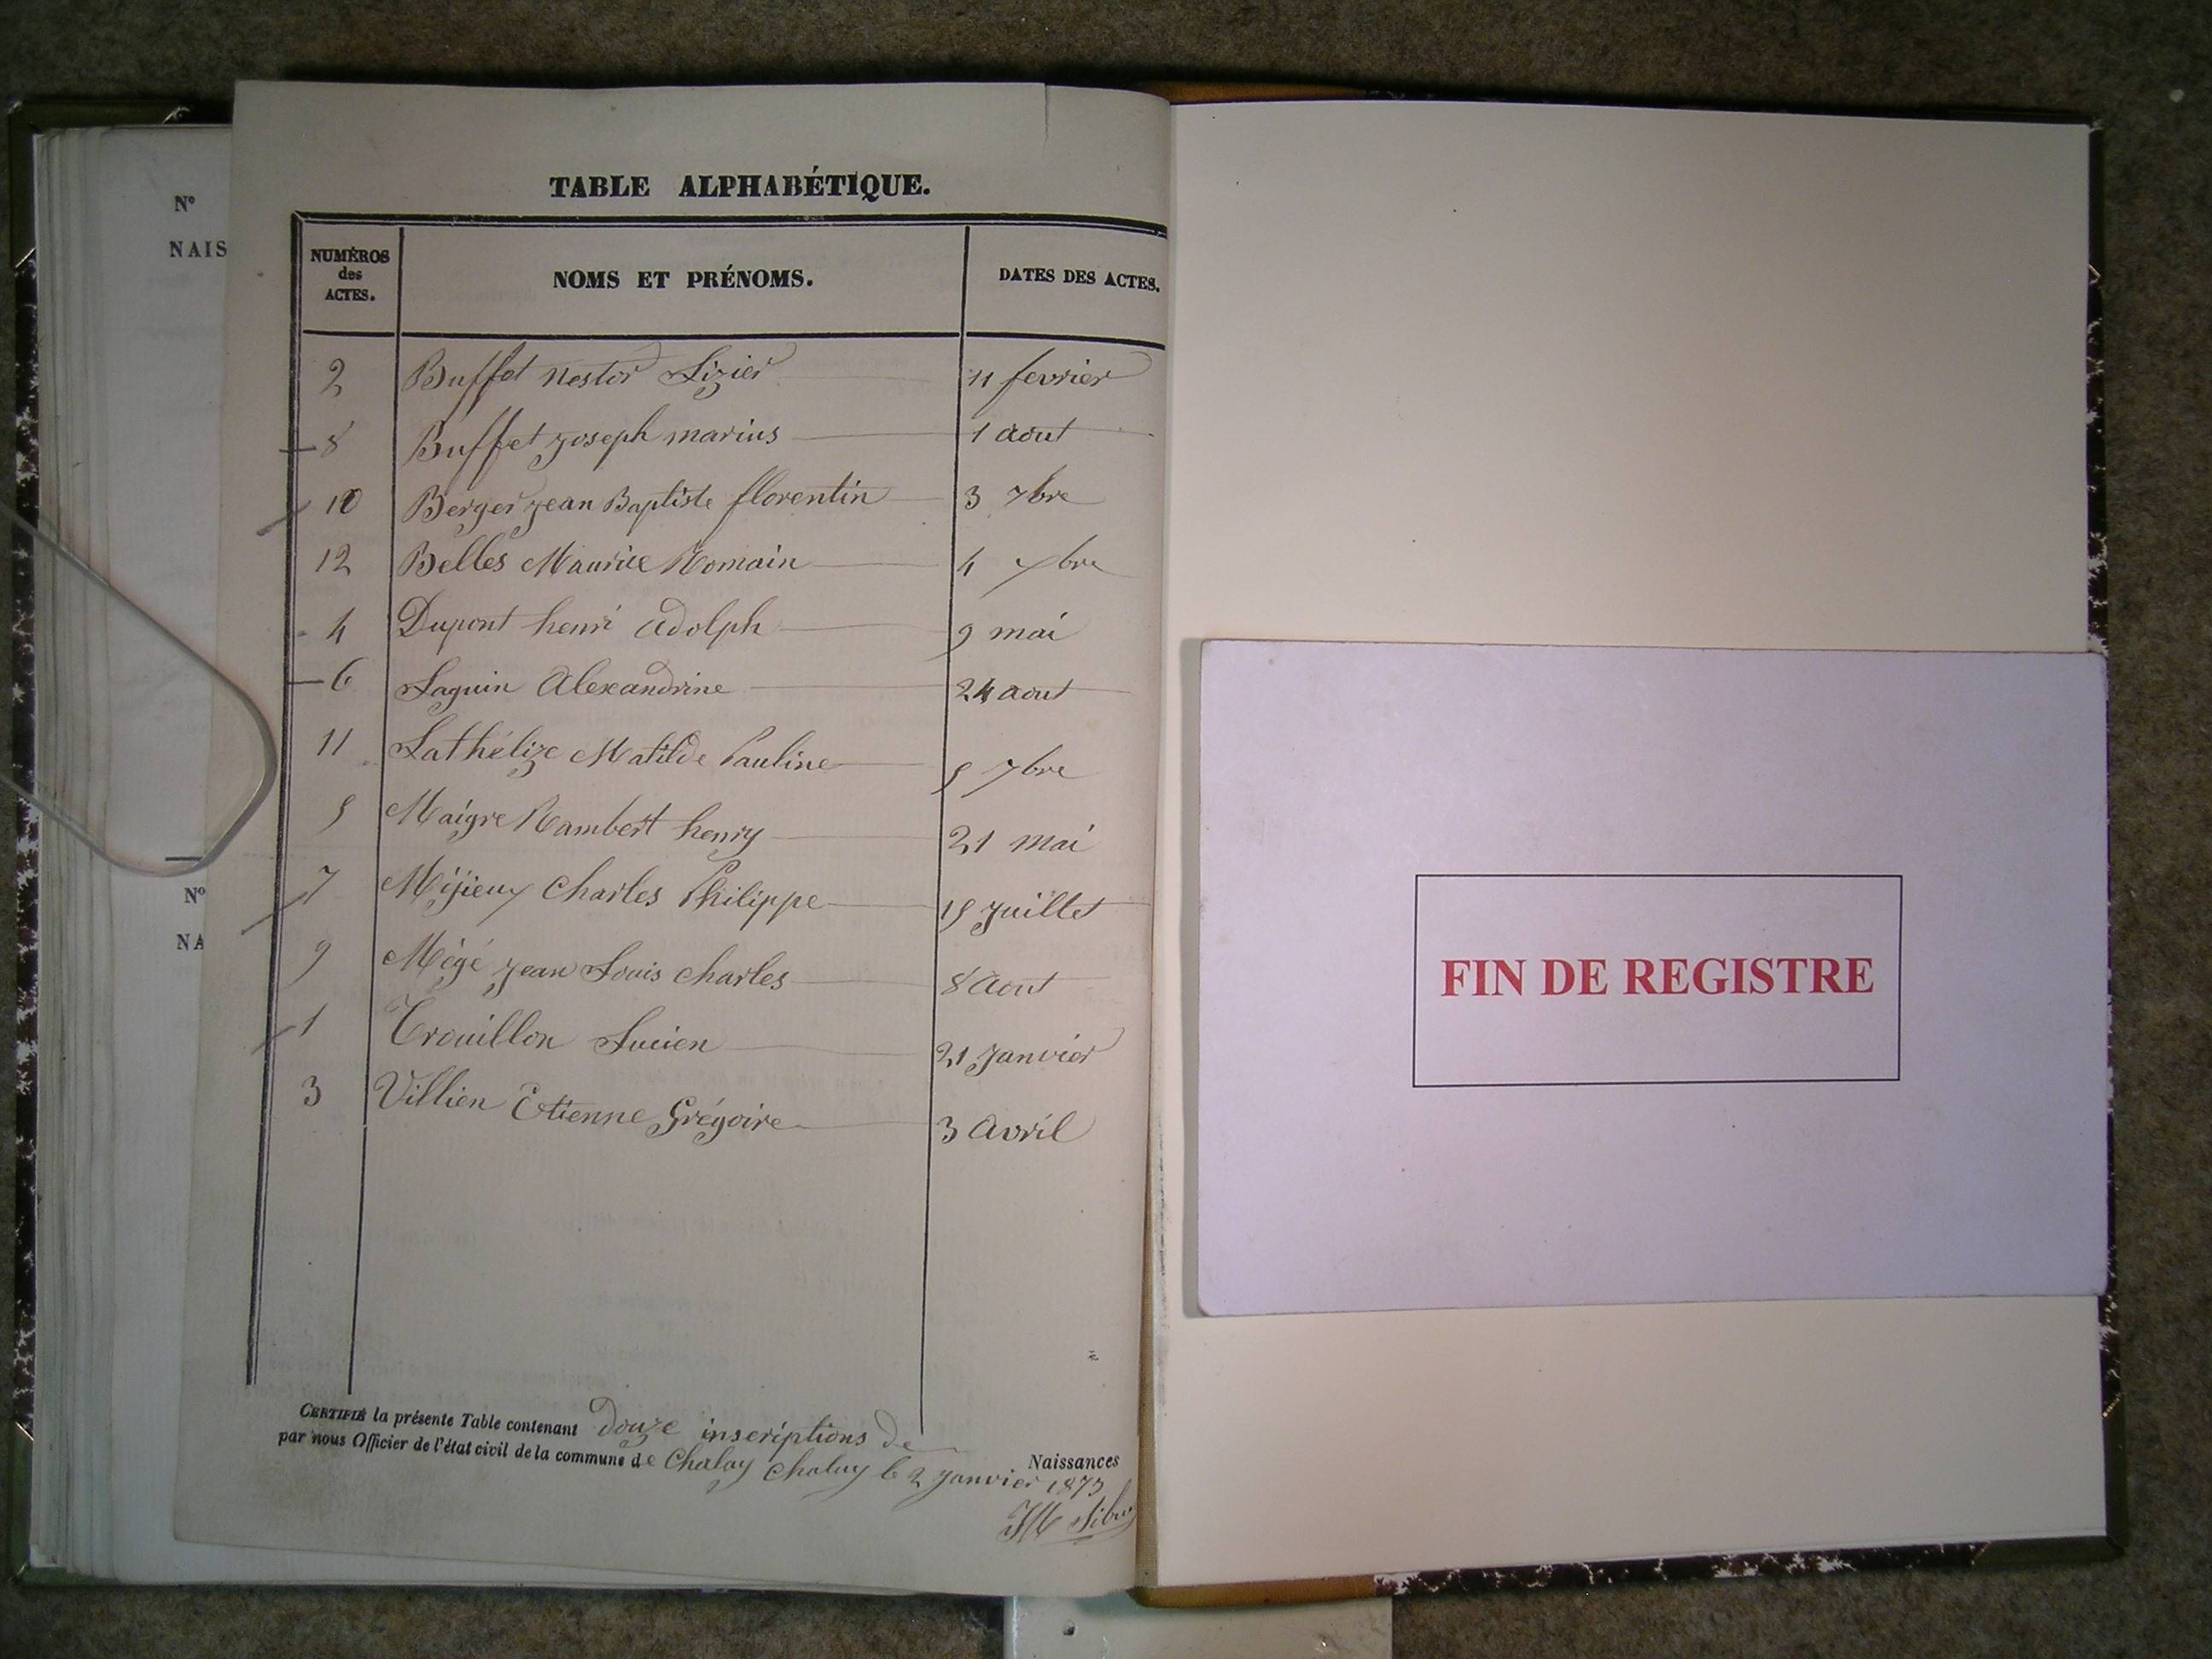 TABLE ALPHABÉTIQUE.
NUMÉROS des ACTES. NOMS ET PRÉNOMS. DATES DES ACTES.
2 Buffet Nestor Lizier 11 fevrier
8 Buffet joseph marius 1 aout
10 Berger jean Baptiste florentin 3 7bre
12 Belles Maurice Romain 4 7bre
4 Dupont henri adolph 9 mai
6 Laguin Alexandrine 24 aout
11 Lathélize Matilde Pauline 5 7bre
5 Maigre Rambert henry 21 mai
7 Charles Philippe 15 juillet
9 Mégé jean Louis charles 8 Aout
1 Trouillon Lucien 21 Janvier
3 Villien Etienne Grégoire 3 Avril
CERTIFIÉ la présente Table contenant Douze inscriptions de Naissances
par nous Officier de l'état civil de la commune de Chalay Chalay le 2 janvier 1873
Nº
NAIS
Nº
NA
FIN DE REGISTRE